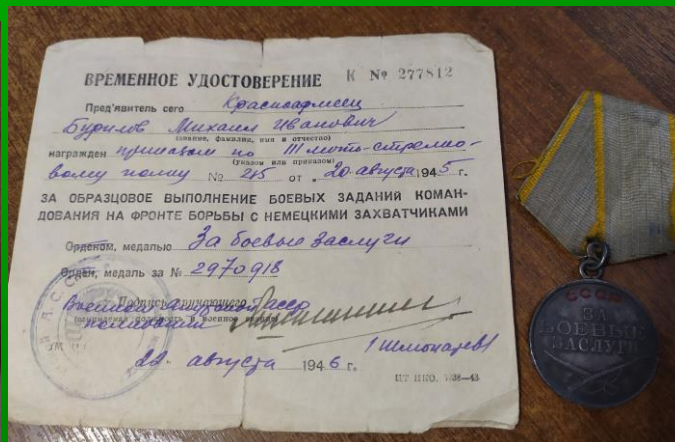 ВРЕМЕННОЕ УДОСТОВЕРЕНИЕ К № 277812
Пред'явитель сего Красноармеец
Будилов Михаил Иванович
(звание, фамилия, имя и отчество)
награжден приказом по III мото-стрелко-
(указом или приказом)
вому полку № 215 от „20 августа 1945 г.
ЗА ОБРАЗЦОВОЕ ВЫПОЛНЕНИЕ БОЕВЫХ ЗАДАНИЙ КОМАН-
ДОВАНИЯ НА ФРОНТЕ БОРЬБЫ С НЕМЕЦКИМИ ЗАХВАТЧИКАМИ
Орденом, медалью За боевые заслуги
Орден, медаль за № 2970918
Подпись вручающего
22 августа 1946 г.
СССР
ЗА
БОЕВЫЕ
ЗАСЛУГИ